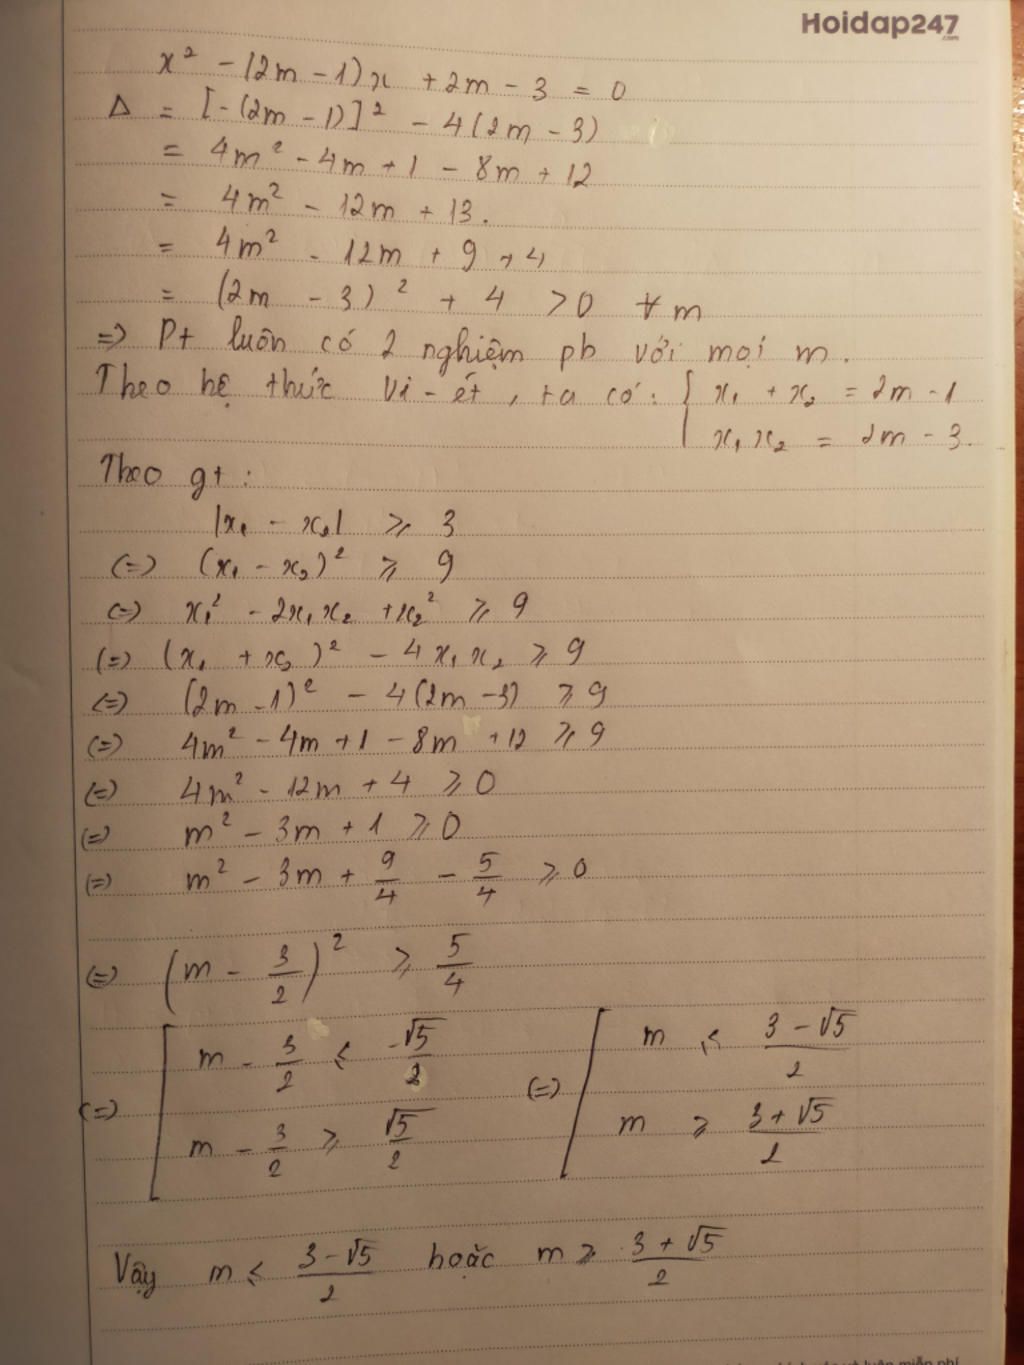 Hoidap247
.com
x² - (2m - 1)x + 2m - 3 = 0
Δ = [-(2m - 1)]² - 4(2m - 3)
= 4m² - 4m + 1 - 8m + 12
= 4m² - 12m + 13.
= 4m² - 12m + 9 + 4
= (2m - 3)² + 4 > 0 ∀ m
=> Pt luôn có 2 nghiệm pb với mọi m.
Theo hệ thức Vi-ét, ta có: { x₁ + x₂ = 2m - 1
x₁x₂ = 2m - 3.
Theo gt:
|x₁ - x₂| ⩾ 3
(=) (x₁ - x₂)² ⩾ 9
(=) x₁² - 2x₁x₂ + x₂² ⩾ 9
(=) (x₁ + x₂)² - 4x₁x₂ ⩾ 9
(=) (2m - 1)² - 4(2m - 3) ⩾ 9
(=) 4m² - 4m + 1 - 8m + 12 ⩾ 9
(=) 4m² - 12m + 4 ⩾ 0
(=) m² - 3m + 1 ⩾ 0
(=) m² - 3m + 9/4 - 5/4 ⩾ 0
(=) (m - 3/2)² ⩾ 5/4
(=) [ m - 3/2 ⩽ -√5/2 (=) [ m ⩽ (3 - √5)/2
m - 3/2 ⩾ √5/2 m ⩾ (3 + √5)/2
Vậy m ⩽ (3 - √5)/2 hoặc m ⩾ (3 + √5)/2